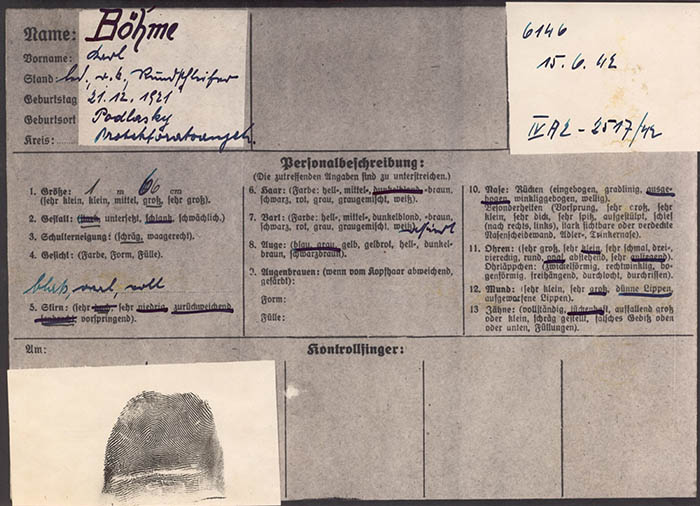 Name: Böhme
Vorname: Karl
Stand: led., r. k., Rundschleifer
Geburtstag 21.12.1921
Geburtsort Podlasky
Kreis: Protektoratsangeh.
6146
15.6.42
IV A2 - 2517/42
Personalbeschreibung:
(Die zutreffenden Angaben sind zu unterstreichen.)
1. Größe: 1 m 60 cm
(sehr klein, klein, mittel, groß, sehr groß).
2. Gestalt: (stark, untersetzt, schlank, schwächlich).
3. Schulterneigung: (schräg, waagerecht).
4. Gesicht: (Farbe, Form, Fülle).
blaß, oval, voll
5. Stirn: (sehr hoch, sehr niedrig, zurückweichend,
senkrecht, vorspringend).
6. Haar: (Farbe: hell-, mittel-, dunkelblond, -braun,
schwarz, rot, grau, graugemischt, weiß).
7. Bart: (Farbe: hell-, mittel-, dunkelblond, -braun,
schwarz, rot, grau, graugemischt, weiß).
8. Auge: (blau, grau, gelb, gelbrot, hell-, dunkel-
braun, schwarzbraun).
9. Augenbrauen: (wenn vom Kopfhaar abweichend,
gefärbt):
Form:
Fülle:
10. Nase: Rücken (eingebogen, gradlinig, ausge-
bogen, winkliggebogen, wellig).
Besonderheiten (Vorsprung, sehr groß, sehr
klein, sehr dick, sehr spitz, aufgestülpt, schief
(nach rechts, links), stark sichtbare oder verdeckte
Nasenscheidewand, Adler-, Trinkernase).
11. Ohren: (sehr groß, sehr klein, sehr schmal, drei-
viereckig, rund, oval, abstehend, sehr anliegend).
Ohrläppchen: (zwickelförmig, rechtwinklig, bo-
genförmig, freihängend, durchlocht, durchrissen).
12. Mund: (sehr klein, sehr groß, dünne Lippen,
aufgeworfene Lippen).
13 Zähne: (vollständig, lückenhaft, auffallend groß
oder klein, schräg gestellt, falsches Gebiß oben
oder unten, Füllungen).
Am:
Kontrollfinger: